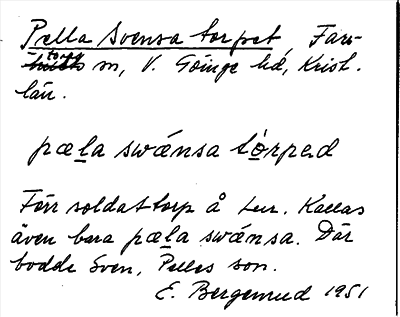 Pella Svensa torpet Fars-
torps sn, V. Göinge hd, Krist.
län.
pæla swánsa tórped
Förr soldattorp å Lur. Kallas
även bara pæla swánsa. Där
bodde Sven, Pelles son.
E. Bergemud 1951